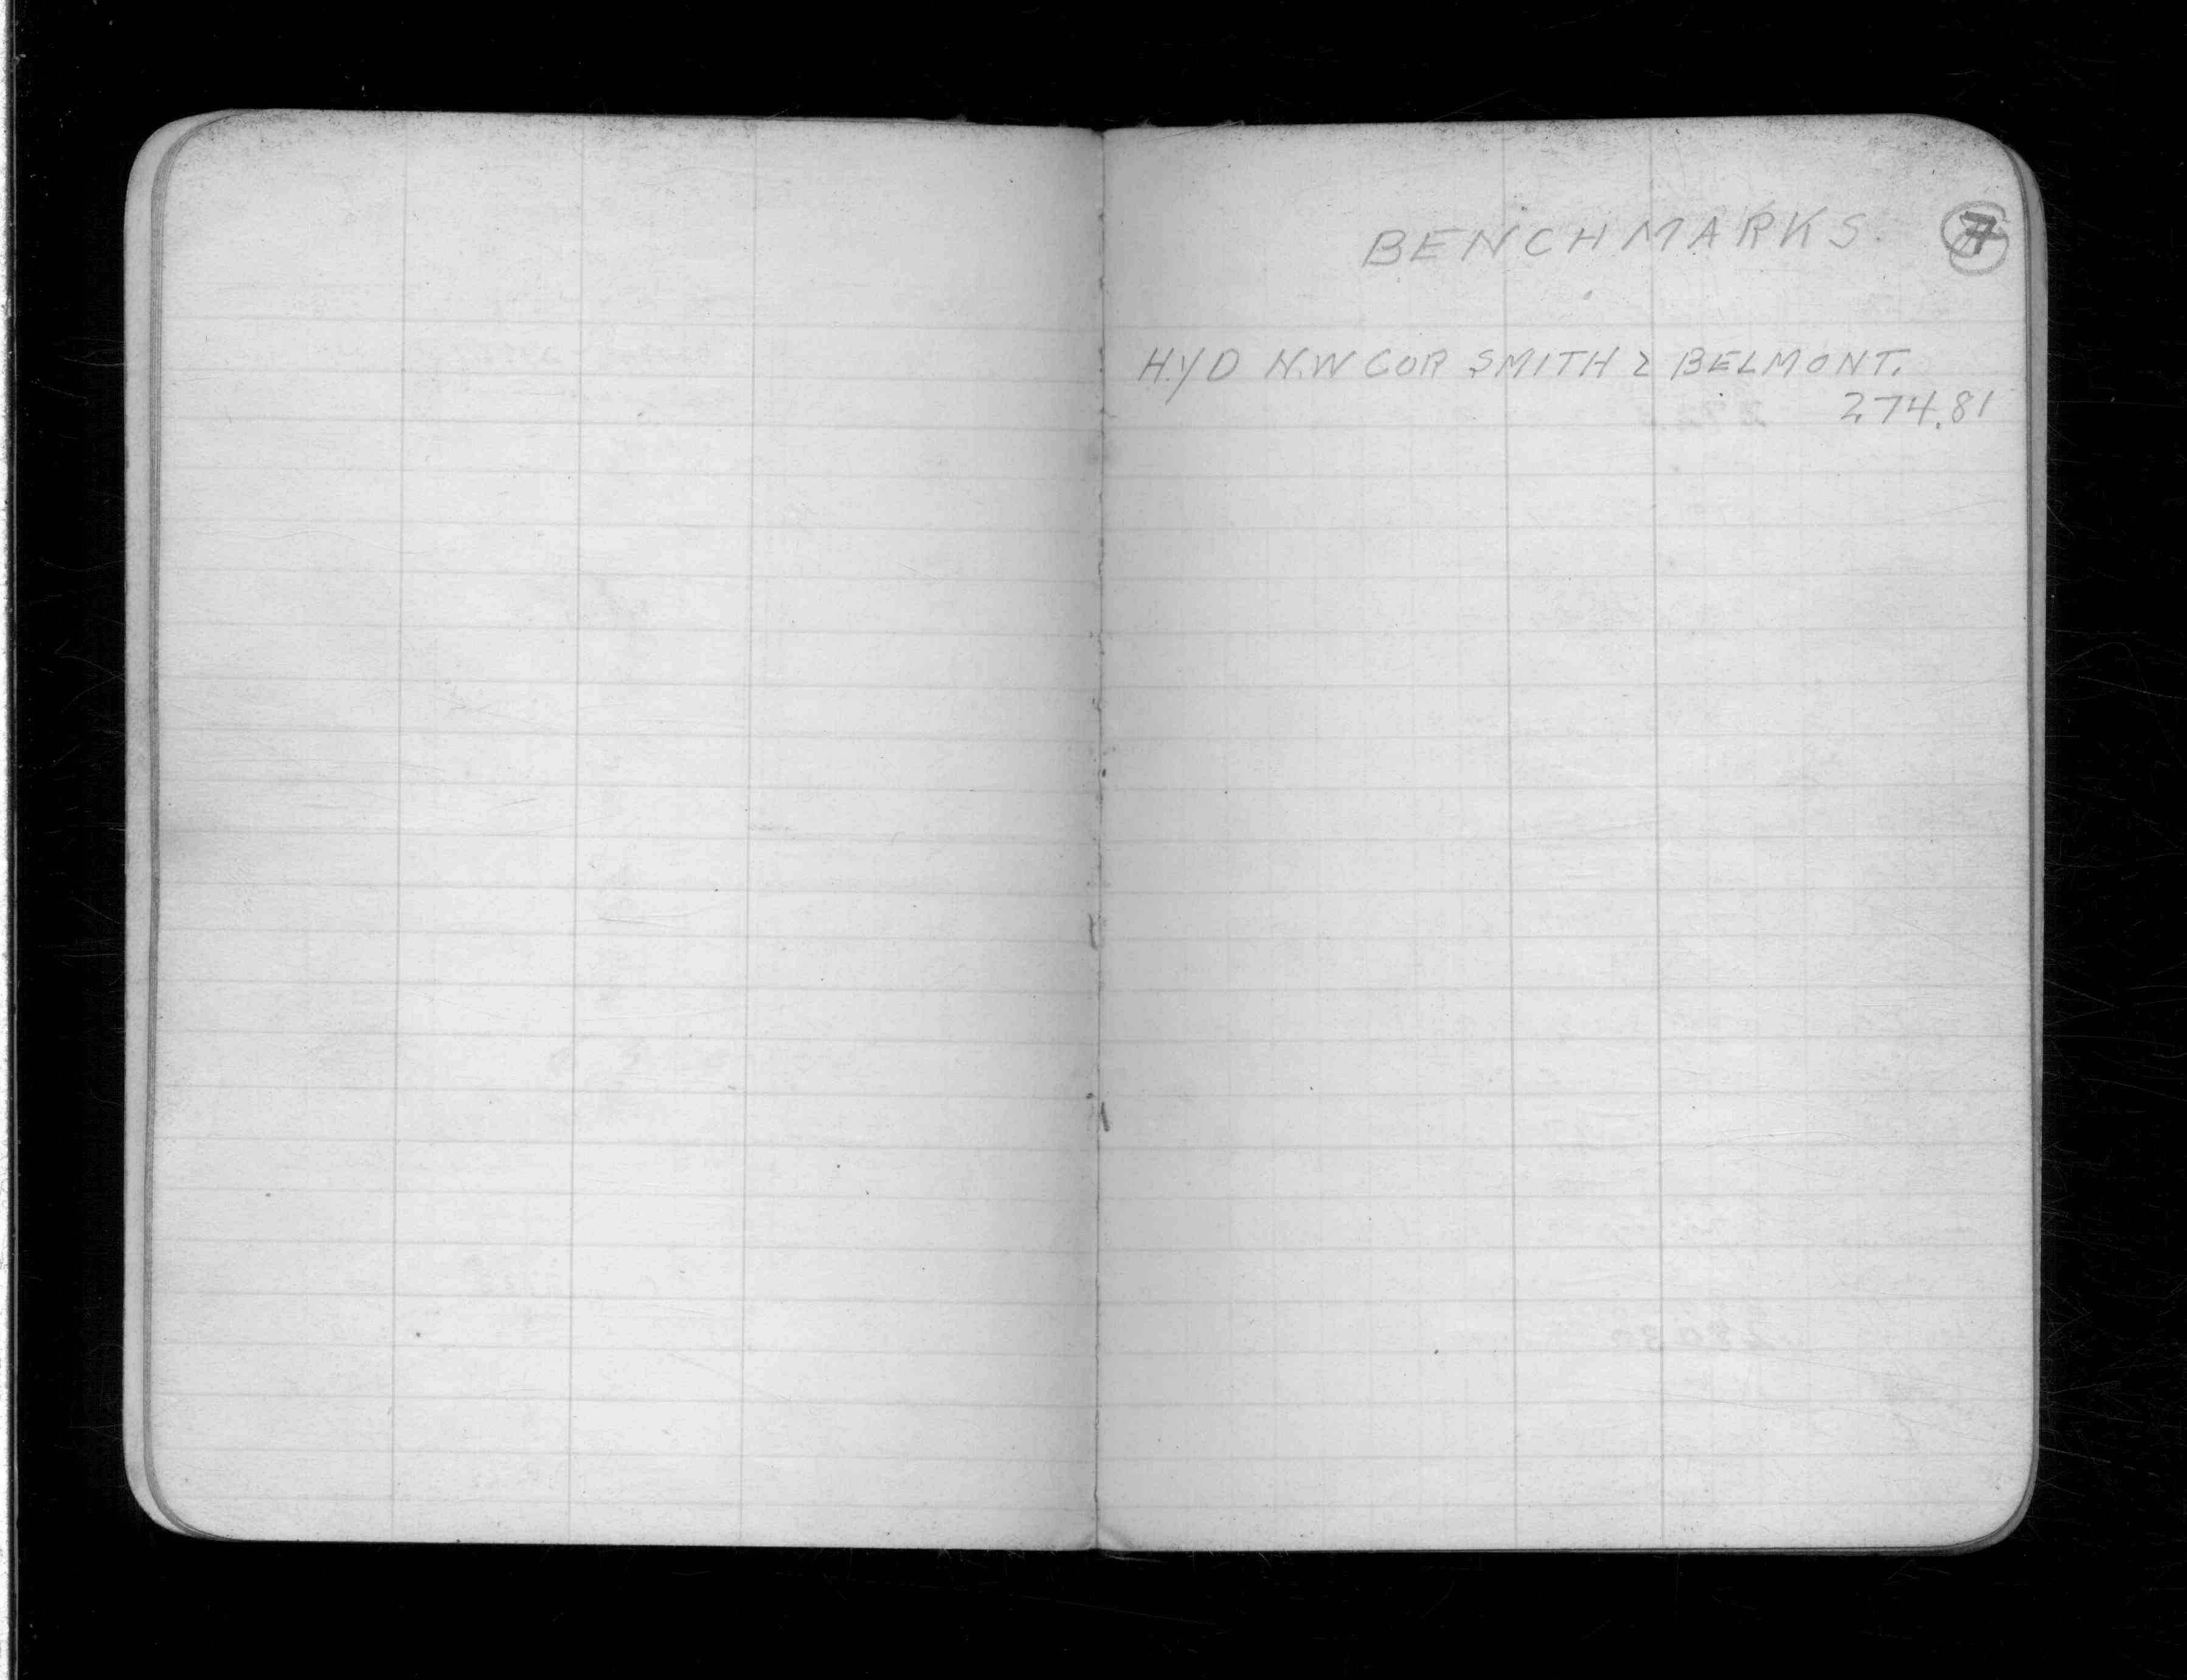 BENCHMARKS. 7
HYD N.W COR SMITH & BELMONT.
274.81